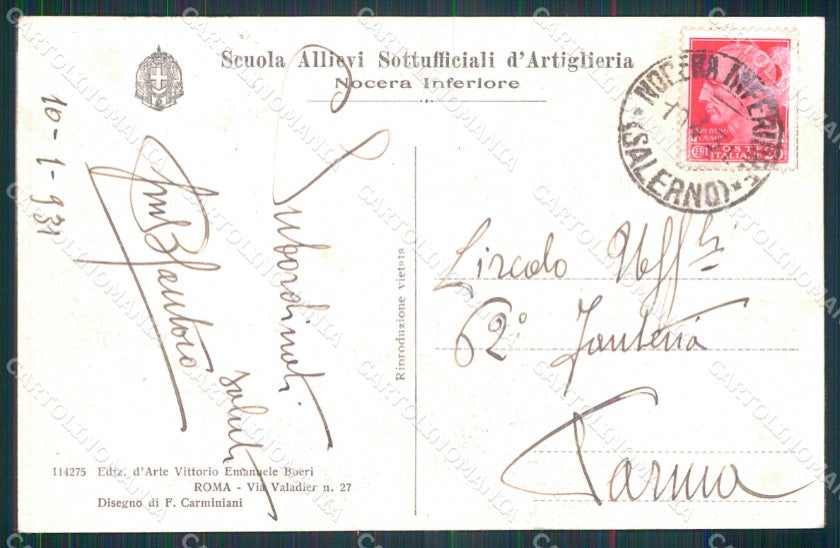 Scuola Allievi Sottufficiali d'Artiglieria
Nocera Inferiore
10-1-931
Subordinati
saluti
Riproduzione vietata
NOCERA INFERIORE
(SALERNO)
POSTE
ITALIANE
Circolo Uff.li
62° Fanteria
Parma
114275 Ediz. d'Arte Vittorio Emanuele Boeri
ROMA - Via Valadier n. 27
Disegno di F. Carminiani
CARTOLINOMANIA